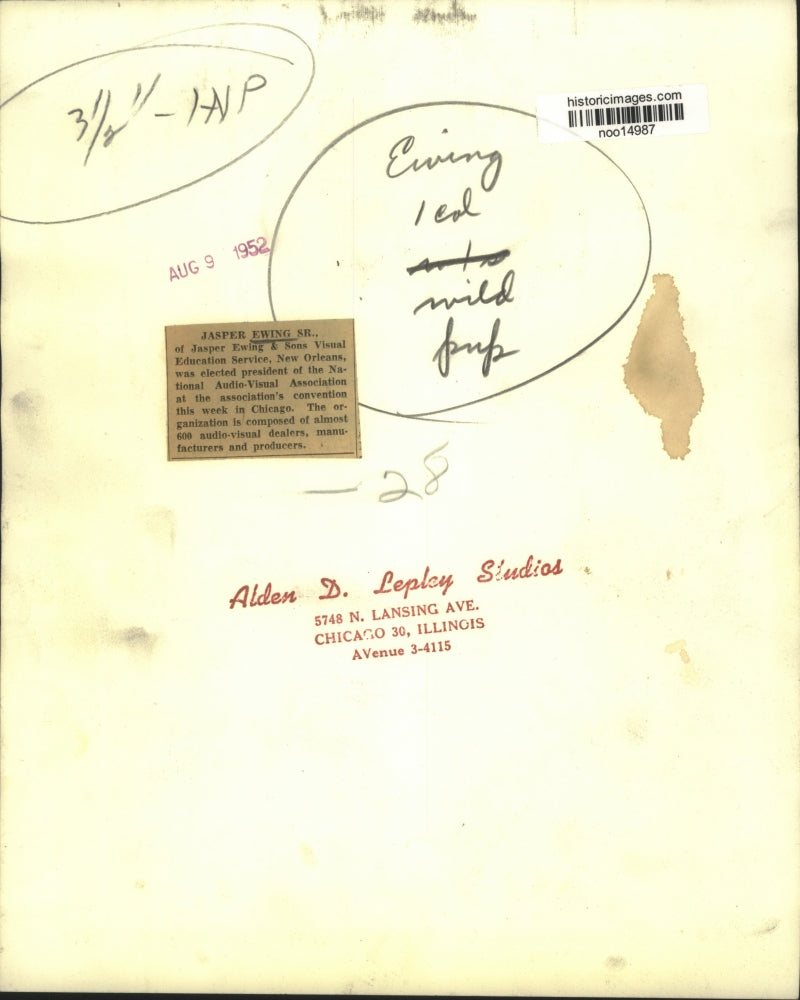 3 1/2" - 1-NP
historicimages.com
noo14987
Ewing
1 col
wild
pup
AUG 9 1952
JASPER EWING SR.,
of Jasper Ewing & Sons Visual
Education Service, New Orleans,
was elected president of the Na-
tional Audio-Visual Association
at the association's convention
this week in Chicago. The or-
ganization is composed of almost
600 audio-visual dealers, manu-
facturers and producers.
— 28
Alden D. Lepley Studios
5748 N. LANSING AVE.
CHICAGO 30, ILLINOIS
AVenue 3-4115